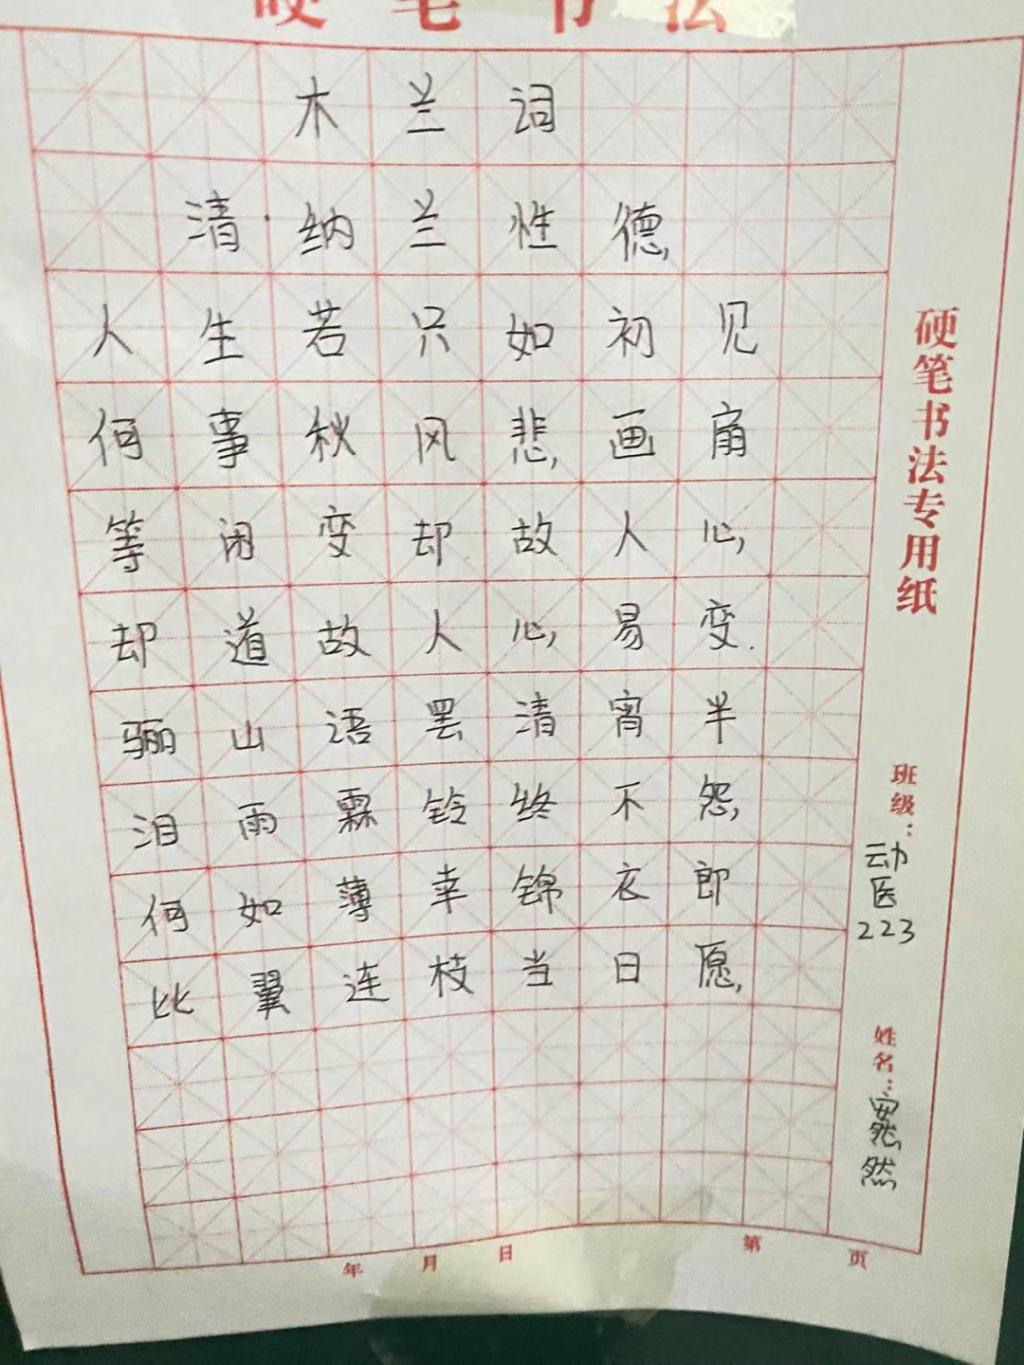 硬笔书法
木兰词
清·纳兰性德
人生若只如初见
何事秋风悲画扇
等闲变却故人心
却道故人心易变.
骊山语罢清宵半
泪雨霖铃终不怨
何如薄幸锦衣郎
比翼连枝当日愿
年 月 日 第 页
硬笔书法专用纸
班级：动医223
姓名：然